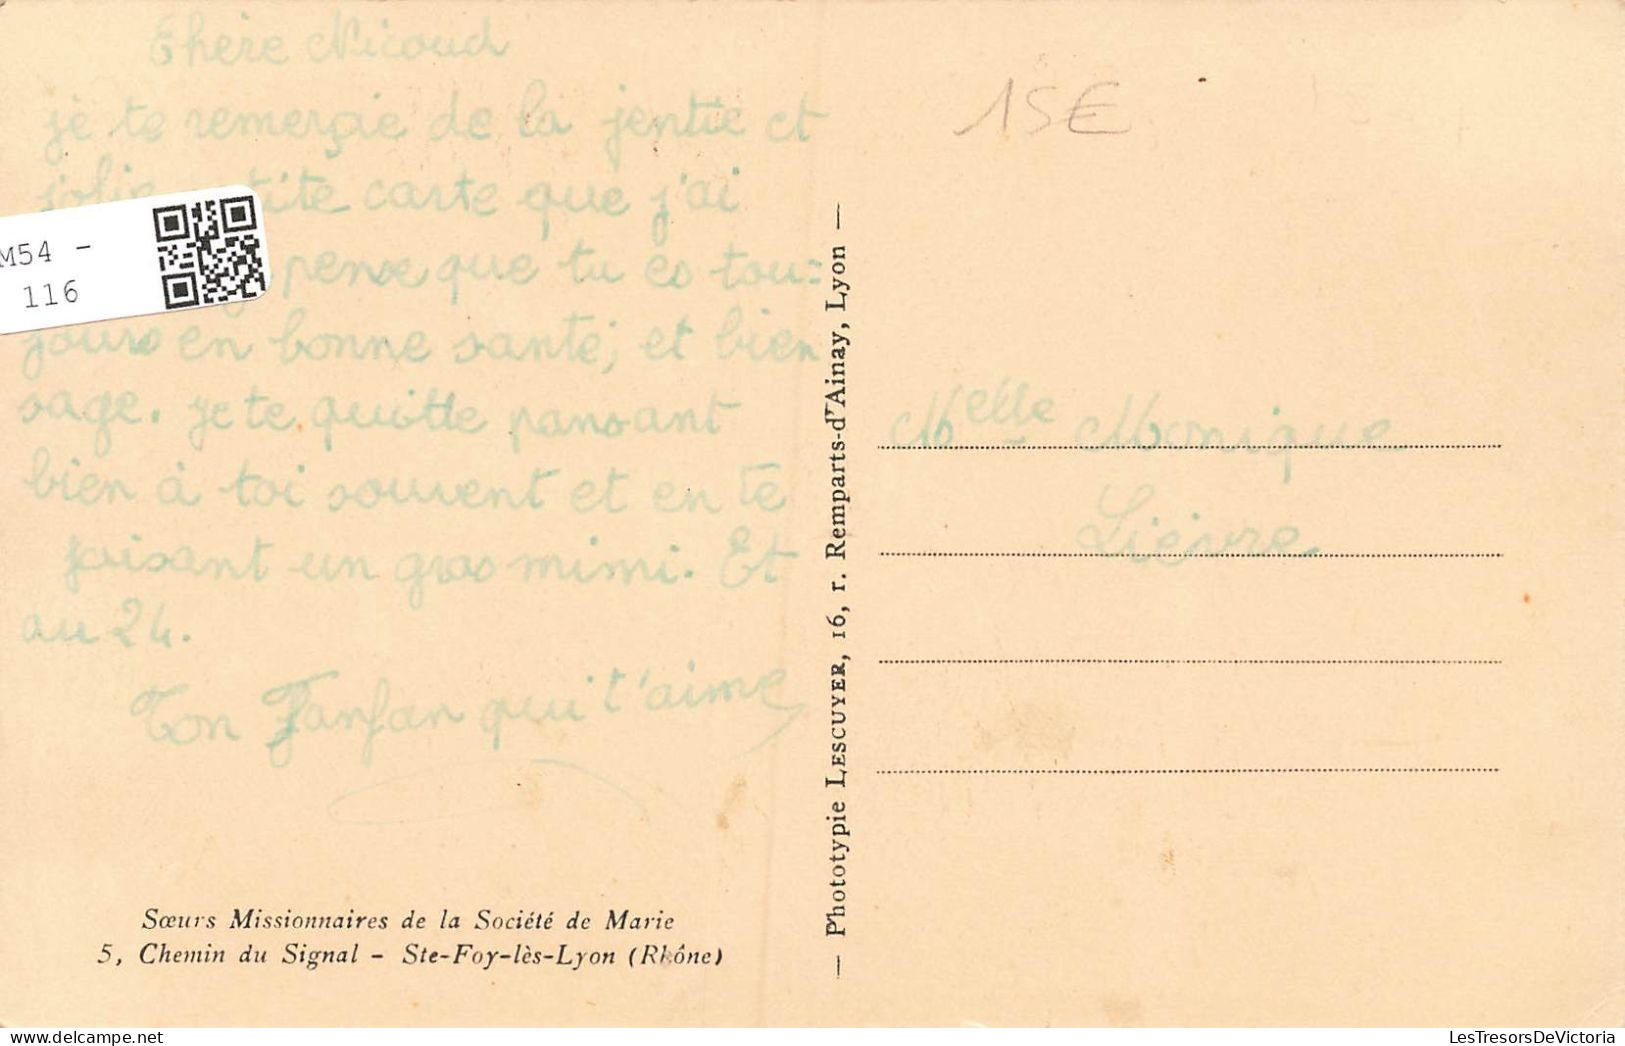 Chère Nicoud
je te remerçie de la jentie et
jolie petite carte que j'ai
pense que tu es tou=
jours en bonne santé, et bien
sage. je te quitte pansant
bien à toi souvent et en te
faisant un gros mimi. Et
au 24.
Ton Fanfan qui t'aime
Sœurs Missionnaires de la Société de Marie
5, Chemin du Signal - Ste-Foy-lès-Lyon (Rhône)
— Phototypie LESCUYER, 16, r. Remparts-d'Ainay, Lyon —
15€
Melle Monique
Lièvre
M54 -
116
LesTresorsDeVictoria